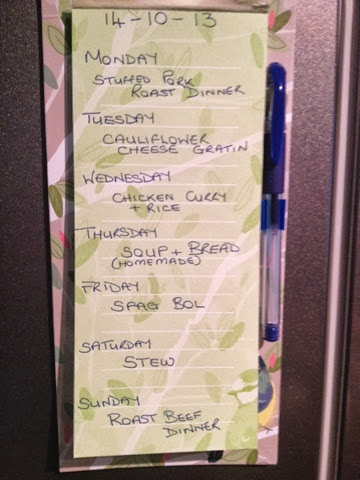 14-10-13
MONDAY
STUFFED PORK
ROAST DINNER
TUESDAY
CAULIFLOWER
CHEESE GRATIN
WEDNESDAY
CHICKEN CURRY
+ RICE
THURSDAY
SOUP + BREAD
(HOMEMADE)
FRIDAY
SPAG BOL
SATURDAY
STEW
SUNDAY
ROAST BEEF
DINNER